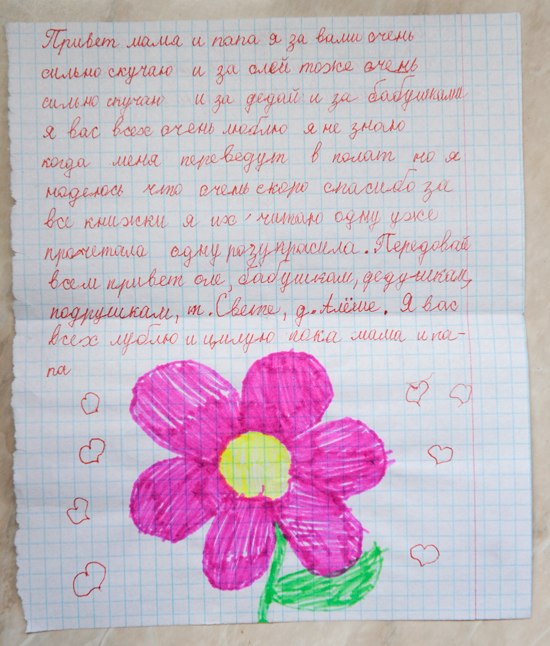 Привет мама и папа я за вами очень
сильно скучаю и за олей тоже очень
сильно скучаю и за дедай и за бабушками
я вас всех очень люблю я не знаю
когда меня переведут в полат но я
надеюсь что очень скоро спасибо за
все книжки я их читаю одну уже
прочетала одну розукрасила. Передовай
всем привет оле, бабушкам, дедушкам,
подрушкам, т. Свете, д. Алёше. Я вас
всех люблю и цилую пока мама и па-
па